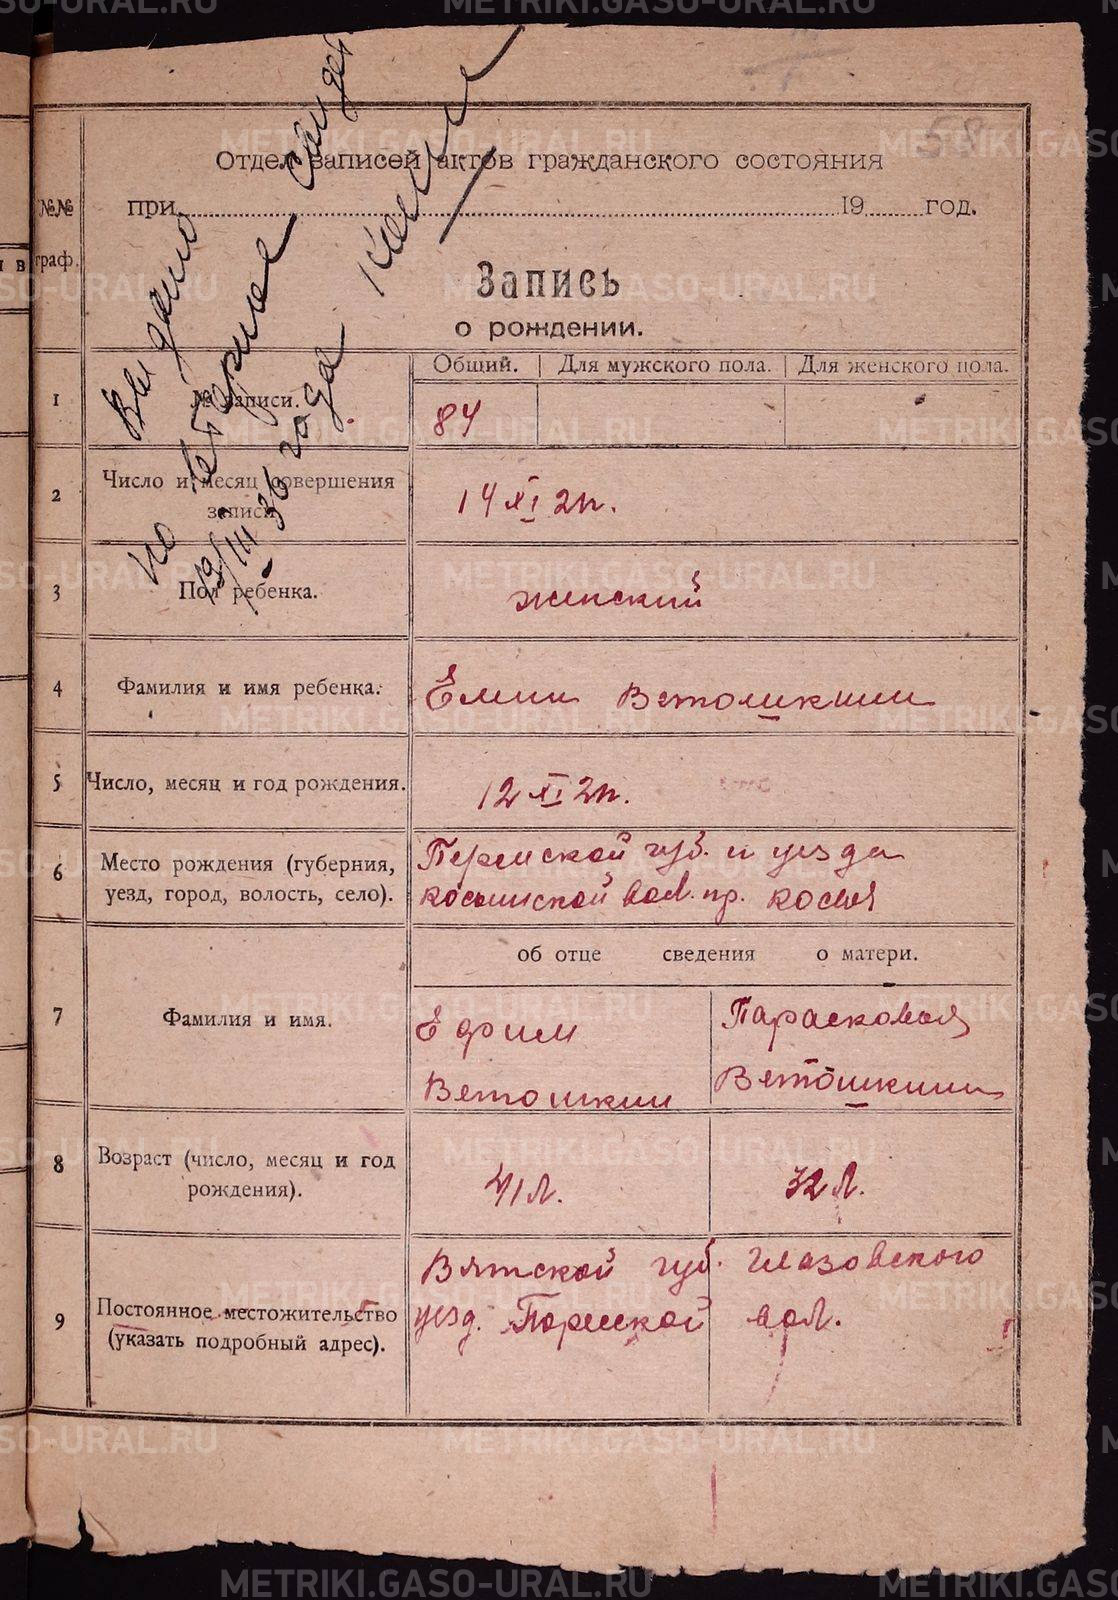 58
Отдел записей актов гражданского состояния
при 19 год.
№№ граф.
Запись
о рождении.
Выдано
повторное свидет
19/III 36 года
Общий. Для мужского пола. Для женского пола.
1 № записи. 84
2 Число и месяц совершения
записи 14 XI 21г.
3 Пол ребенка. женский
4 Фамилия и имя ребенка. Ветошкин
5 Число, месяц и год рождения. 12 XI 21г.
6 Место рождения (губерния,
уезд, город, волость, село).
Пермской губ. и уезда
косьинской вол. пр. косья
об отце сведения о матери.
7 Фамилия и имя.
Ефим
Ветошкин
Парасковья
Ветошкин
8 Возраст (число, месяц и год
рождения).
41 л. 32 л.
9 Постоянное местожительство
(указать подробный адрес).
Вятской губ. Глазовского
уезд. вол.
METRIKI.GASO-URAL.RU